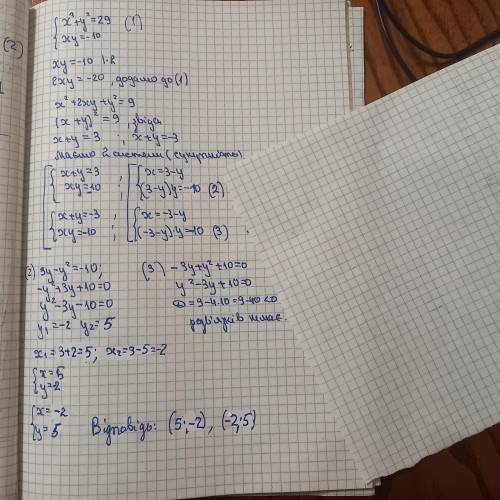 (2)
{x²+y²=29 (1)
{xy=-10
xy=-10 |·2
2xy=-20, додамо до (1)
x²+2xy+y²=9
(x+y)²=9, звідси
x+y=3 ; x+y=-3
Маємо 2 системи (сукупність)
[{x+y=3 ; [{x=3-y
{xy=10 ; {(3-y)y=-10 (2)
{x+y=-3 ; {x=-3-y
{xy=-10 ; {(-3-y)·y=-10 (3)
(2) 3y-y²=-10;
-y²+3y+10=0
y²-3y-10=0
y₁=-2 y₂=5
(3) -3y+y²+10=0
y²-3y+10=0
D=9-4·10=9-40<0
розв'язків немає.
x₁=3+2=5; x₂=3-5=-2
{x=5
{y=-2
{x=-2
{y=5
Відповідь: (5;-2), (-2;5)